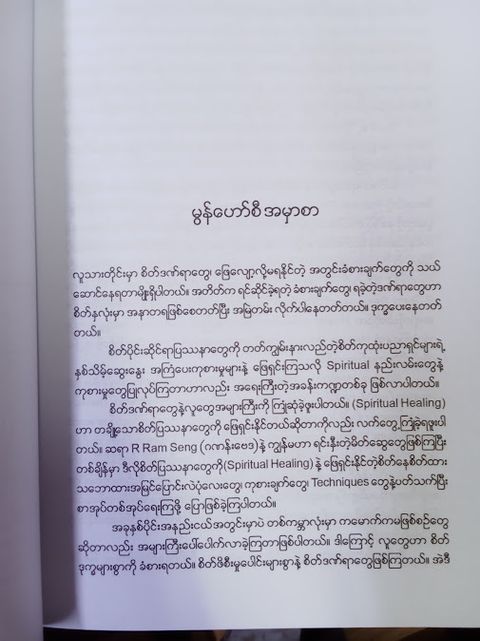 မွန်ဟော်စီအမှာစာ
လူသားတိုင်းမှာ စိတ်ဒဏ်ရာတွေ၊ ဖြေလျှော့လို့မရနိုင်တဲ့ အတွင်းခံစားချက်တွေကို သယ်
ဆောင်နေရတာမျိုးရှိပါတယ်။ အတိတ်က ရင်ဆိုင်ခဲ့ရတဲ့ ခံစားချက်တွေ၊ ရခဲ့တဲ့ဒဏ်ရာတွေဟာ
စိတ်နှလုံးမှာ အနာတရဖြစ်စေတတ်ပြီး အမြဲတမ်း လိုက်ပါနေတတ်တယ်။ ဒုက္ခပေးနေတတ်
တယ်။
စိတ်ပိုင်းဆိုင်ရာပြဿနာတွေကို တတ်ကျွမ်းနားလည်တဲ့စိတ်ကုထုံးပညာရှင်များရဲ့
နှစ်သိမ့်ဆွေးနွေး အကြံပေးကုစားမှုများနဲ့ ဖြေရှင်းကြသလို Spiritual နည်းလမ်းတွေနဲ့
ကုစားမှုတွေပြုလုပ်ကြတာဟာလည်း အရေးကြီးတဲ့အခန်းကဏ္ဍတစ်ခု ဖြစ်လာပါတယ်။
စိတ်ဒဏ်ရာတွေနဲ့လူတွေအများကြီးကို ကြုံဆုံခဲ့ဖူးပါတယ်။ (Spiritual Healing)
ဟာ တချို့သောစိတ်ပြဿနာတွေကို ဖြေရှင်းနိုင်တယ်ဆိုတာကိုလည်း လက်တွေ့ကြုံခဲ့ရဖူးပါ
တယ်။ ဆရာ R Ram Seng (ဂဏန်းဗေဒ)နဲ့ ကျွန်မဟာ ရင်းနှီးတဲ့မိတ်ဆွေတွေဖြစ်ကြပြီး
တစ်ချိန်မှာ ဒီလိုစိတ်ပြဿနာတွေကို(Spiritual Healing)နဲ့ ဖြေရှင်းနိုင်တဲ့စိတ်နေစိတ်ထား
သဘောထားအမြင်ပြောင်းလဲပုံလေးတွေ၊ ကုစားချက်တွေ၊ Techniques တွေနဲ့ပတ်သက်ပြီး
စာအုပ်တစ်အုပ်ရေးကြဖို့ ပြောဖြစ်ခဲ့ကြပါတယ်။
အခုနှစ်ပိုင်းအနည်းငယ်အတွင်းမှာပဲ တစ်ကမ္ဘာလုံးမှာ ကမောက်ကမဖြစ်စဉ်တွေ
ဆိုတာလည်း အများကြီးပေါ်ပေါက်လာခဲ့ကြတာဖြစ်ပါတယ်။ ဒါကြောင့် လူတွေဟာ စိတ်
ဒုက္ခများစွာကို ခံစားရတယ်။ စိတ်ဖိစီးမှုပေါင်းများစွာနဲ့ စိတ်ဒဏ်ရာတွေဖြစ်ကြတယ်။ အဲဒီ